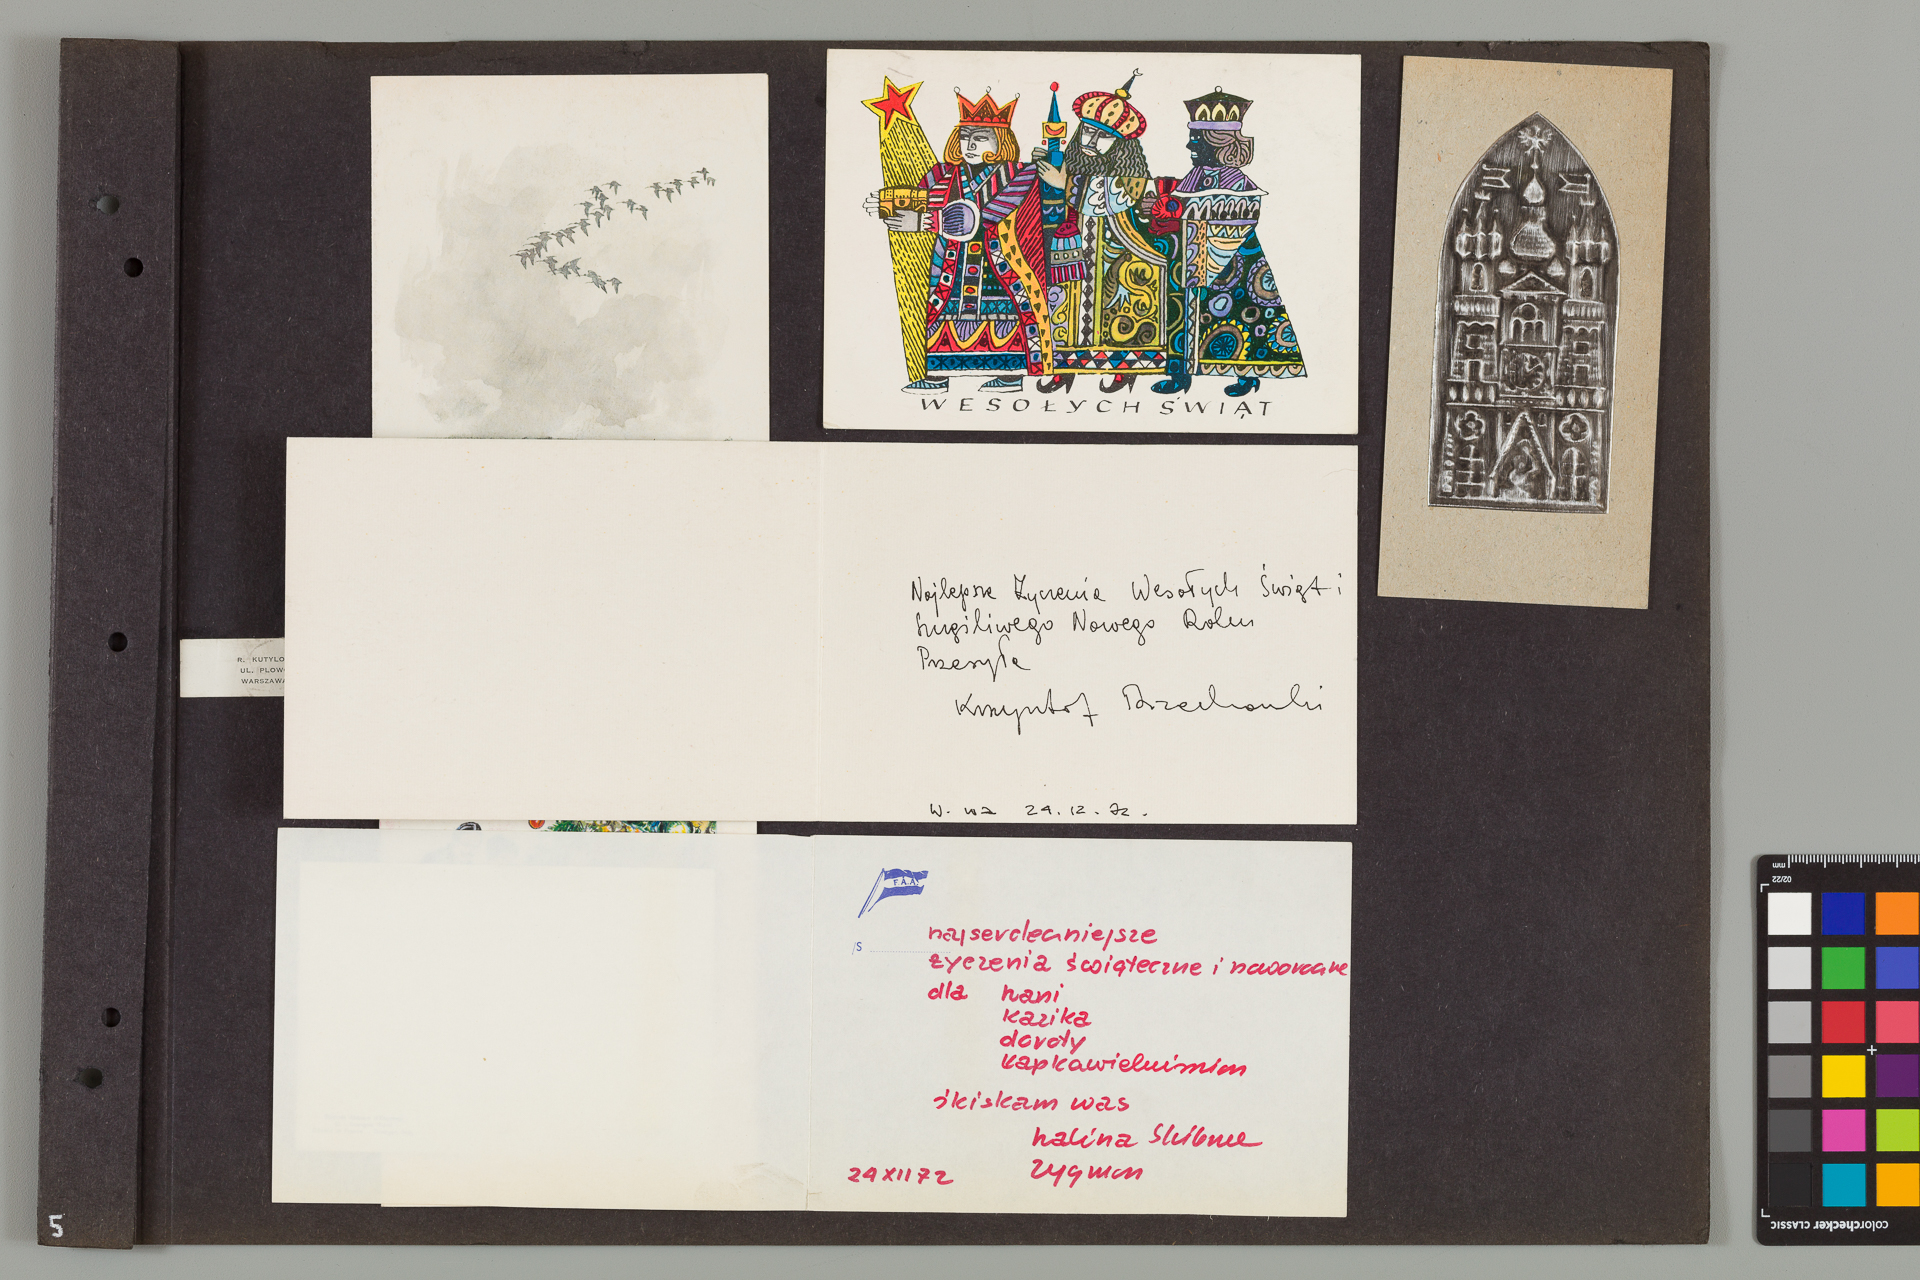 WESOŁYCH ŚWIĄT
R. KUTYŁO
UL. PLOW
WARSZAWA
Najlepsze Życzenia Wesołych Świąt i
Szczęśliwego Nowego Roku
Przesyła
Krzysztof
W-wa 24.12.72.
F.A.A.
S
najserdeczniejsze
życzenia świąteczne i noworoczne
dla hani
kazika
doroty
ściskam was
halina
zygmun
24 XII 72
5
mm
02/22
colorchecker CLASSIC